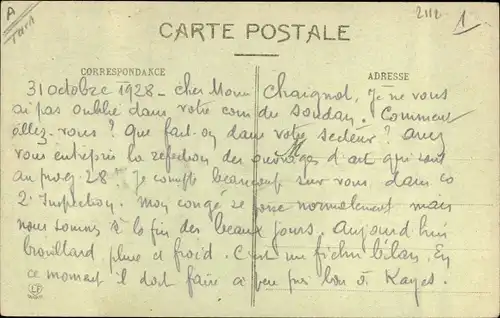 A
Tarn
2112
1
CARTE POSTALE
CORRESPONDANCE
ADRESSE
31 octobre 1928 - cher Mons. Chaignot, Je ne vous
ai pas oublié dans votre coin du soudan. Comment
allez-vous? Que fait-on dans votre secteur? avez
vous entrepris la refection des ouvrages d'art qui sont
au prog. 28? Je compte beaucoup sur vous dans ce
2e Inspection. Mon congé se passe normalement mais
nous sommes à la fin des beaux jours. Aujourd'hui
brouillard, pluie et froid. C'est un fichu bilan. En
ce moment il doit faire à peu près bon à Kayes.
LF